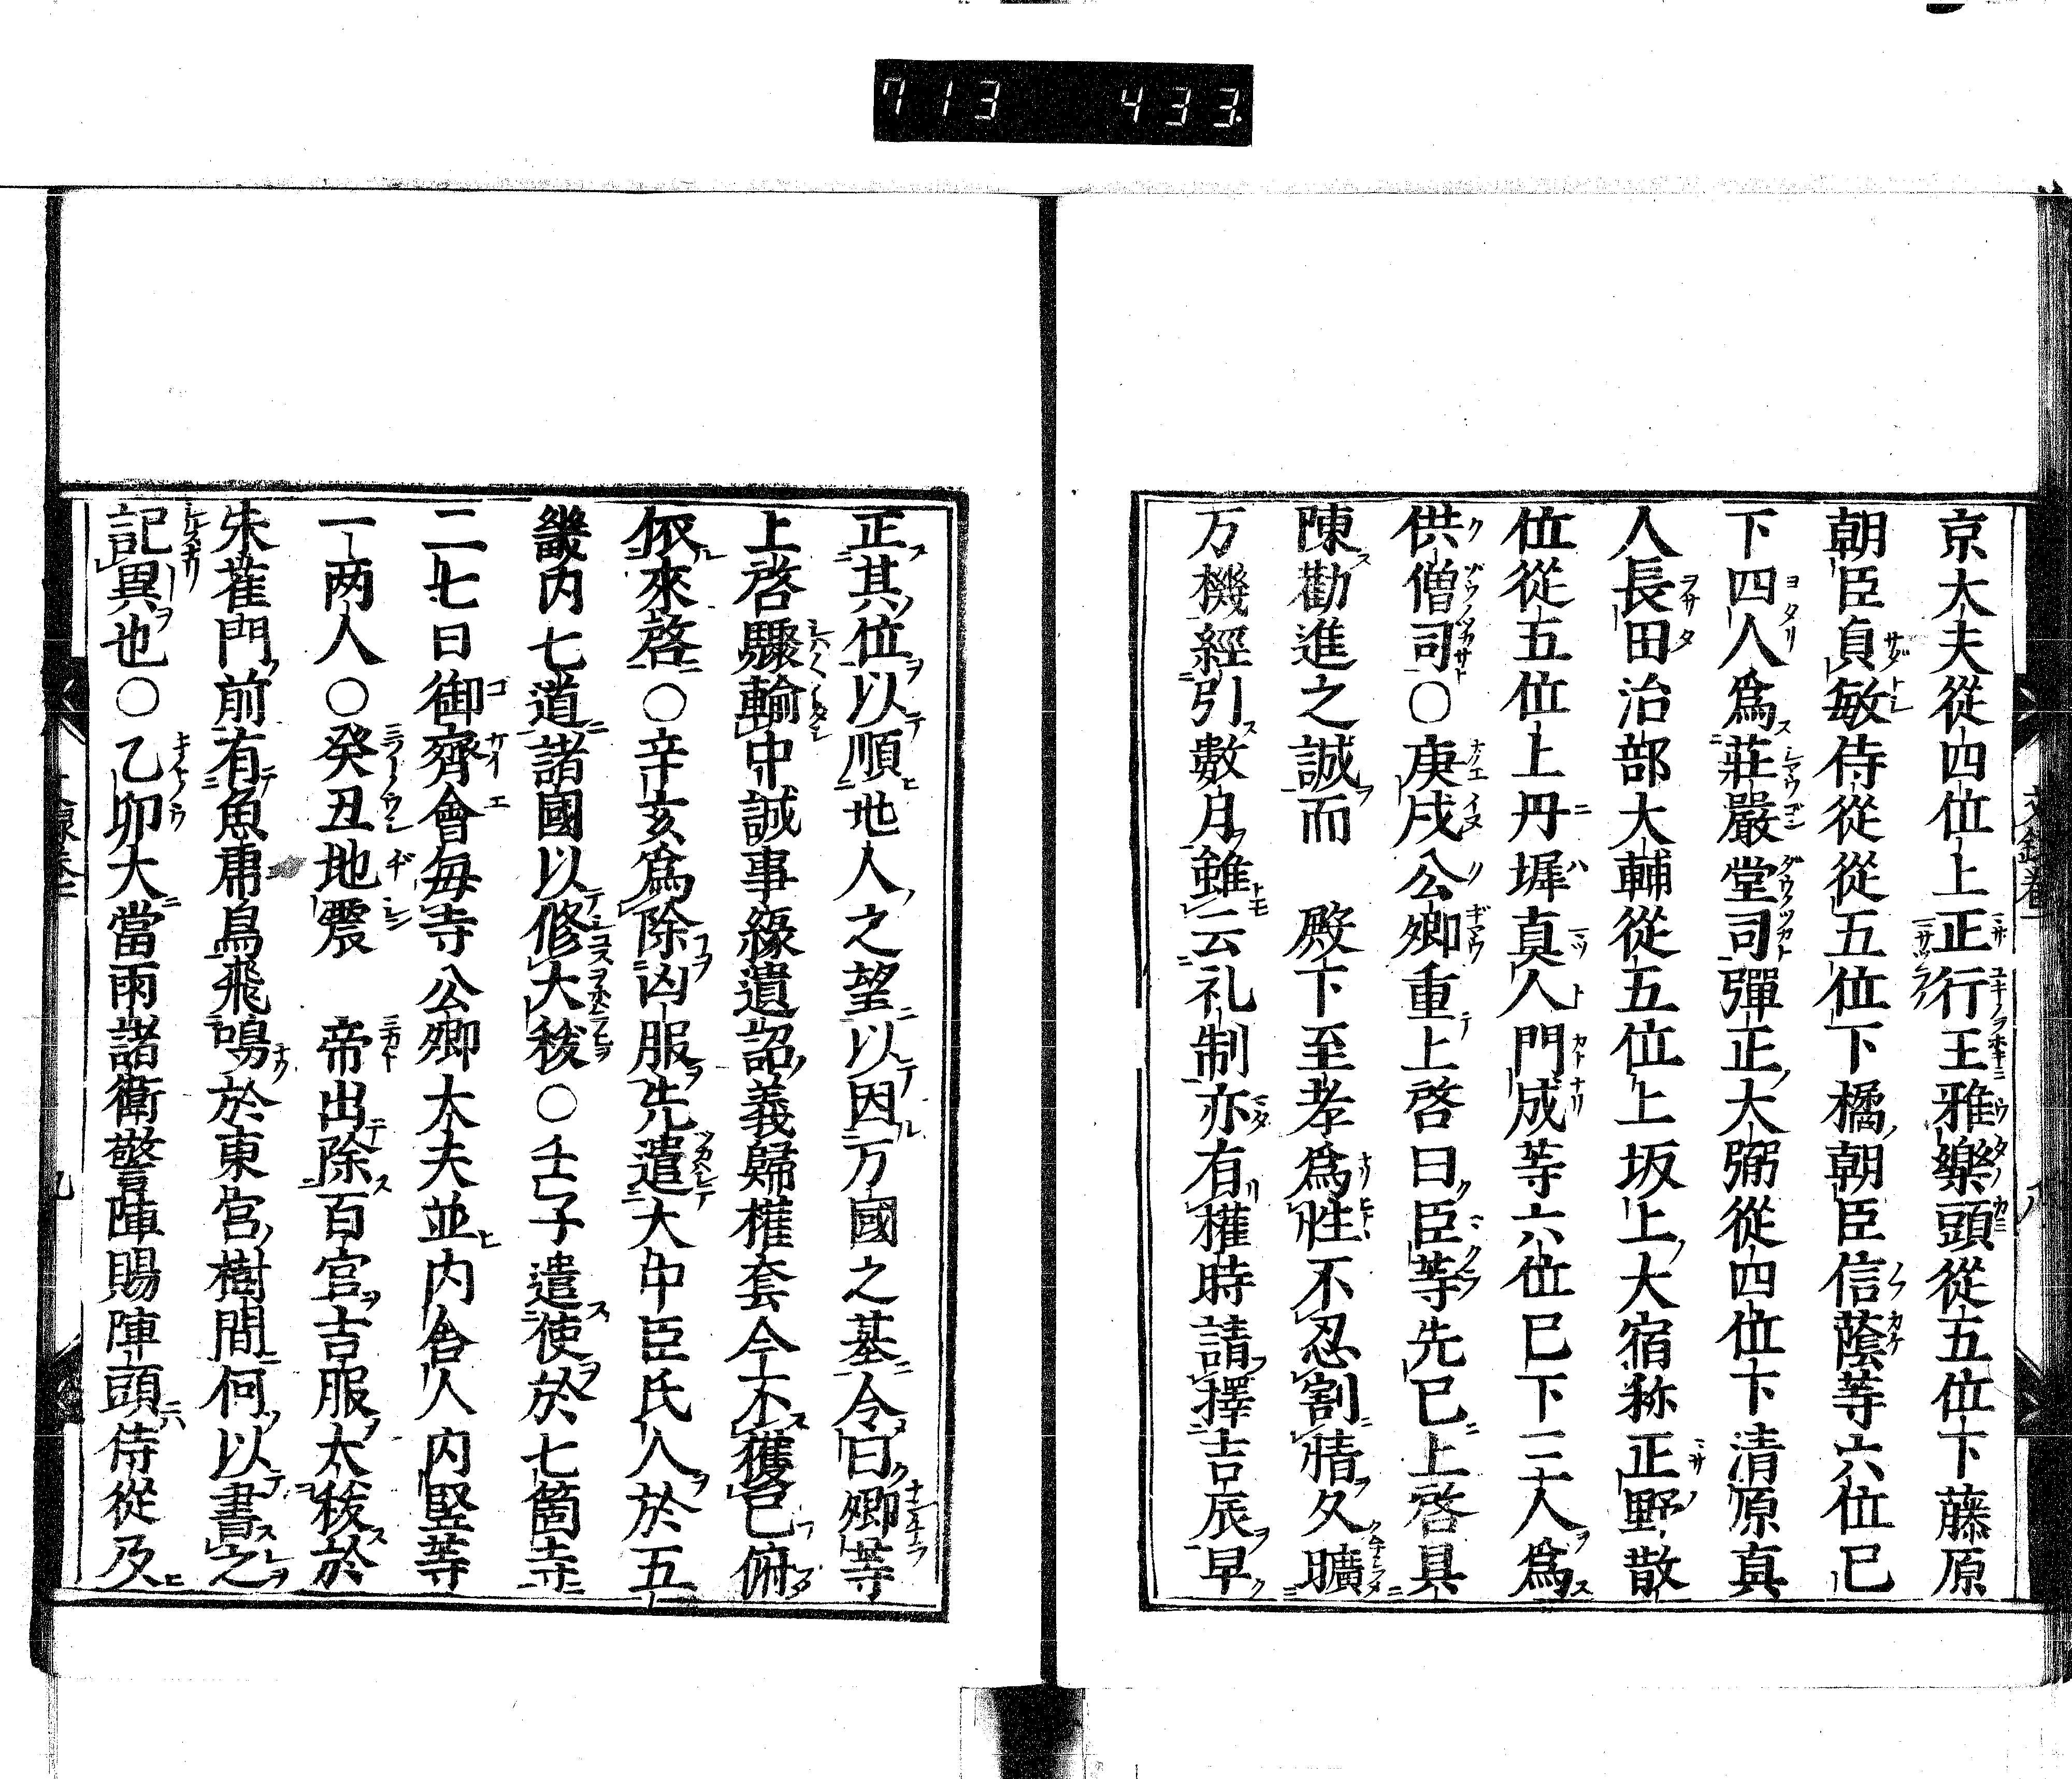 713 433.
京大夫從四位上正行王雅樂頭從五位下藤原
朝臣貞敏侍從從五位下橘朝臣信蔭等六位已
下四人爲莊嚴堂司彈正大弼從四位下清原真
人長田治部大輔從五位上坂上大宿祢正野散
位從五位上丹墀真人門成等六位已下二十人爲
供僧司○庚戌公卿重上啓曰臣等先已上啓具
陳勸進之誠而 殿下至孝爲性不忍割情久曠
万機經引數月雖云礼制亦有權時請擇吉辰早
正其位以順地人之望以因万國之基令曰卿等
上啓驟輸中誠事緣遺詔義歸權奪今不獲已俯
依來啓○辛亥爲除凶服先遣大中臣氏人於五
畿内七道諸國以修大秡○壬子遣使於七箇寺
二七日御齊會每寺公卿大夫並内舎人内竪等
一两人○癸丑地震 帝出除百官吉服大秡於
朱雀門前有魚虎鳥飛鳴於東宮樹間何以書之
記異也○乙卯大當雨諸衛警陣賜陣頭侍從及